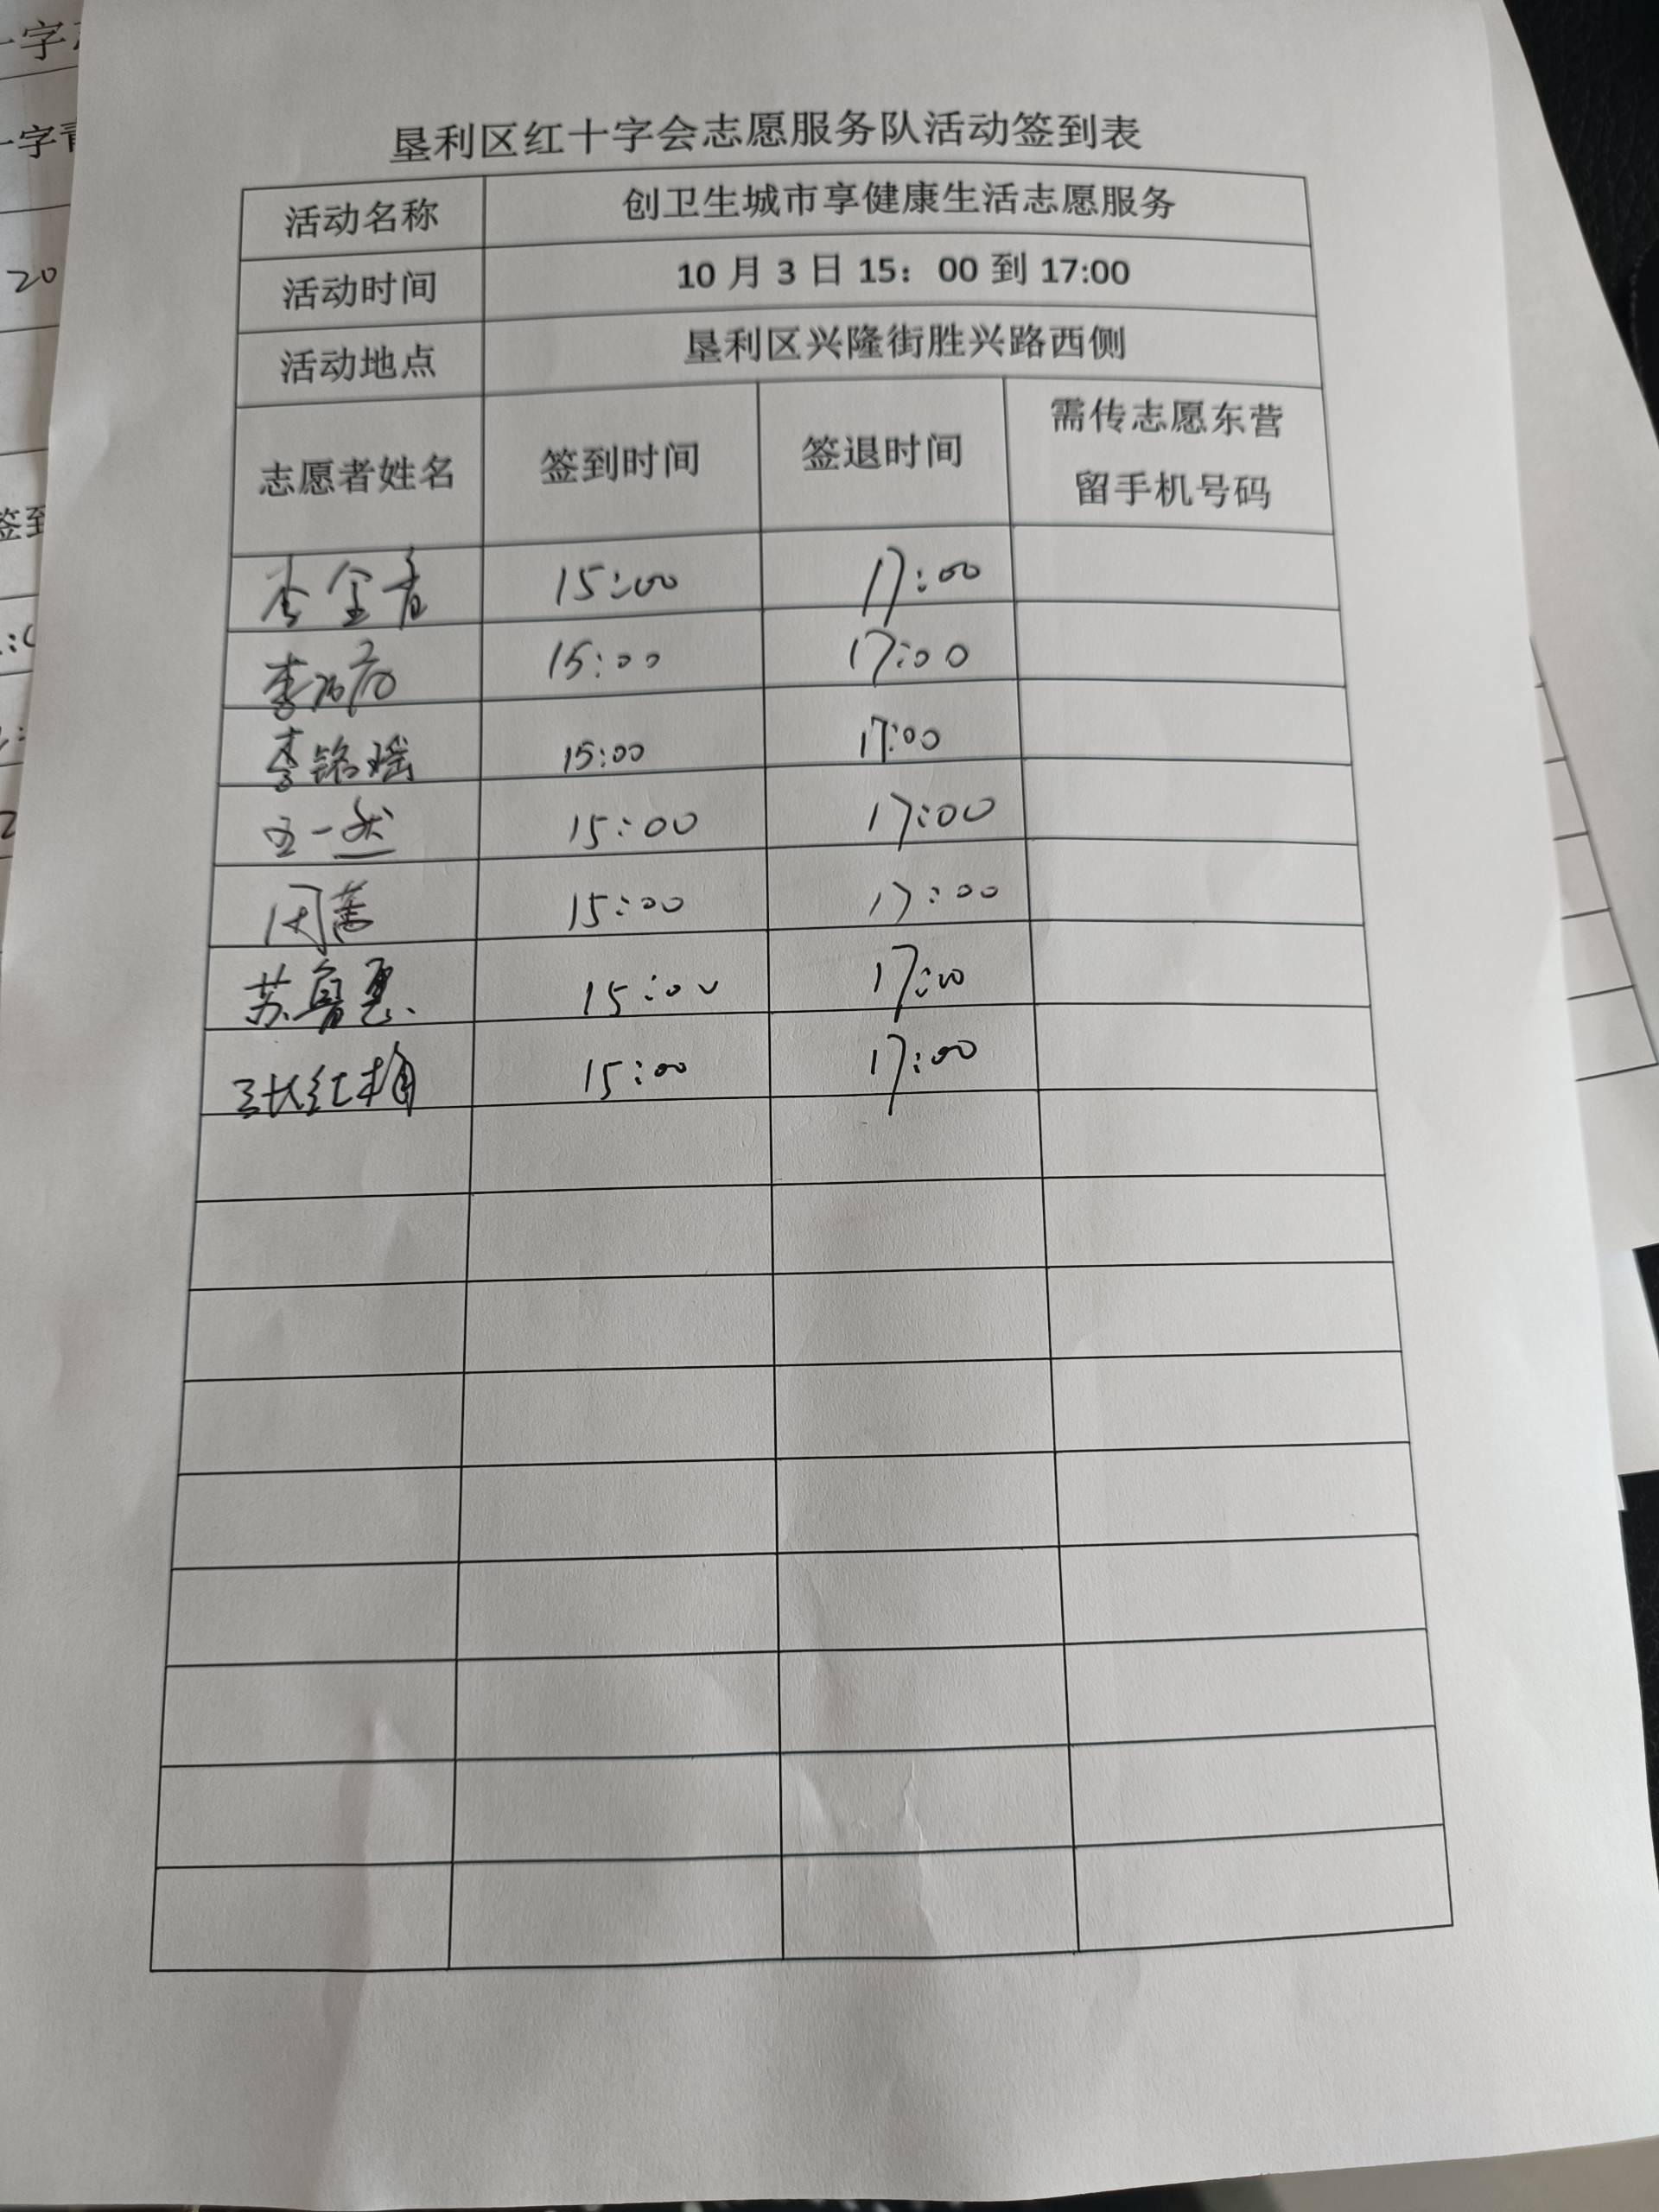 垦利区红十字会志愿服务队活动签到表
活动名称 创卫生城市享健康生活志愿服务
活动时间 10 月 3 日 15：00 到 17:00
活动地点 垦利区兴隆街胜兴路西侧
志愿者姓名 签到时间 签退时间 需传志愿东营
留手机号码
15:00 17:00
15:00 17:00
李铭瑶 15:00 17:00
王一然 15:00 17:00
15:00 17:00
苏鲁惠 15:00 17:00
张红梅 15:00 17:00